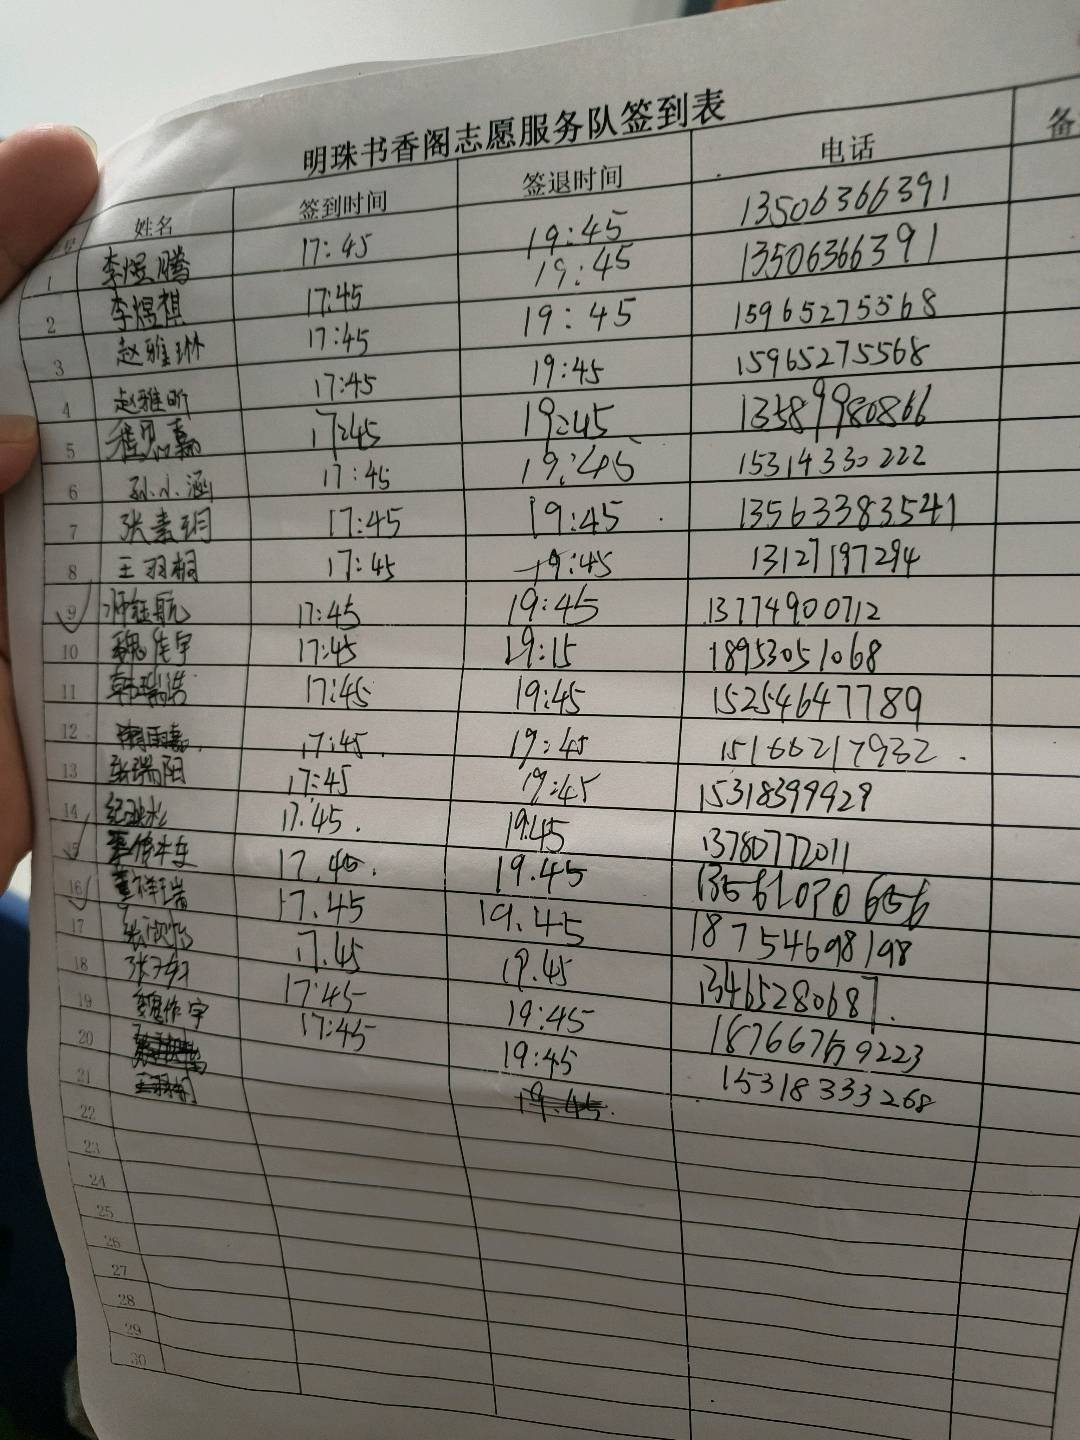 明珠书香阁志愿服务队签到表
姓名 签到时间 签退时间 电话 备
1 李煜腾 17:45 19:45 13506366391
2 李煜祺 17:45 19:45 13506366391
3 赵雅琳 17:45 19:45 15965275568
4 赵雅昕 17:45 19:45 15965275568
5 17:45 19:45 13589980866
6 孙小涵 17:45 19:45 15314330222
7 张素玥 17:45 19:45 13563383541
8 王羽桐 17:45 19:45 13127197294
9 17:45 19:45 13774900712
10 魏佳宇 17:45 19:15 18953051068
11 韩瑞浩 17:45 19:45 15254647789
12 17:45. 19:45 15166217932.
13 张瑞阳 17:45 19:45 15318399929
14 17.45. 19.45 13780772011
17.45. 19.45 13561070656
16 董祥瑞 17.45 19.45 18754698198
17 17.45 19.45 13465280687.
18 17:45 19:45 18766759223
19 魏作宇 17:45 19:45 15318333268
20
21 19.45.
22
23
24
25
26
27
28
29
30